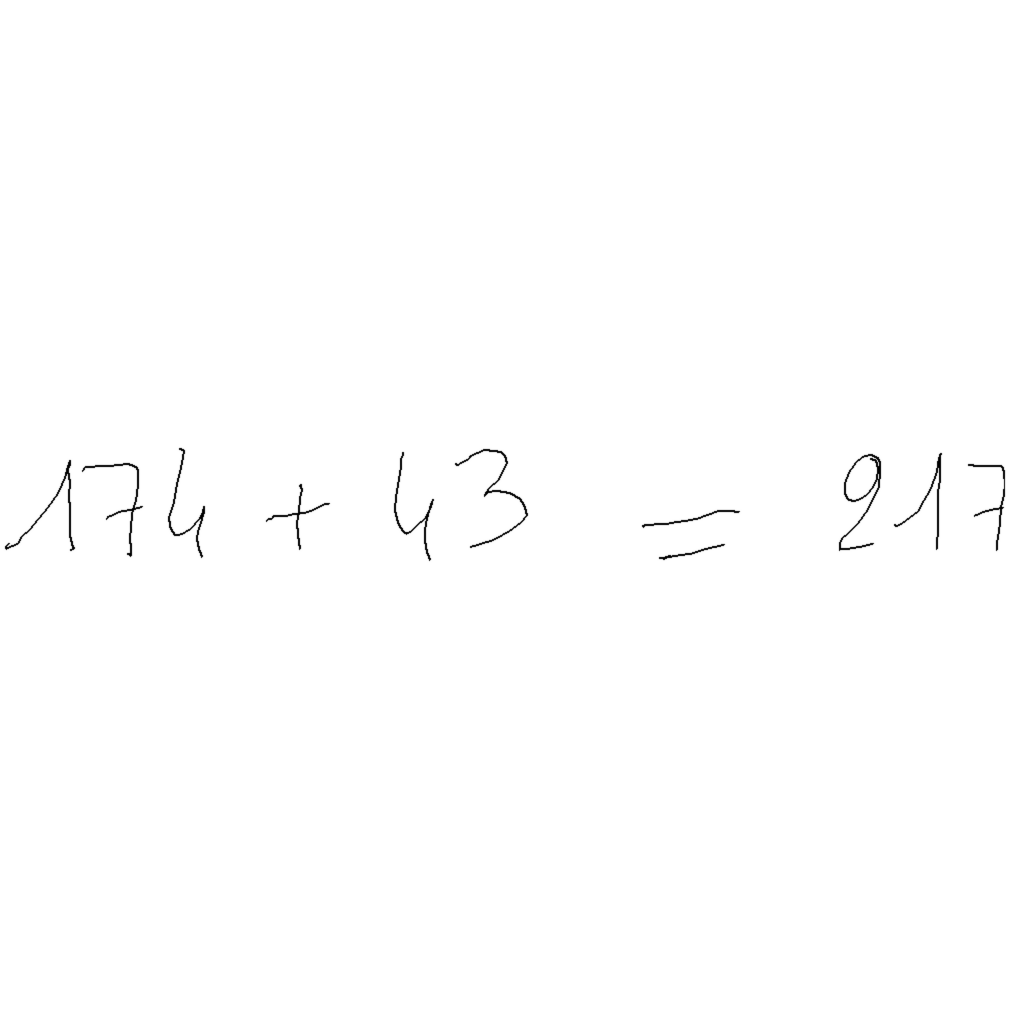 174 + 43 = 217